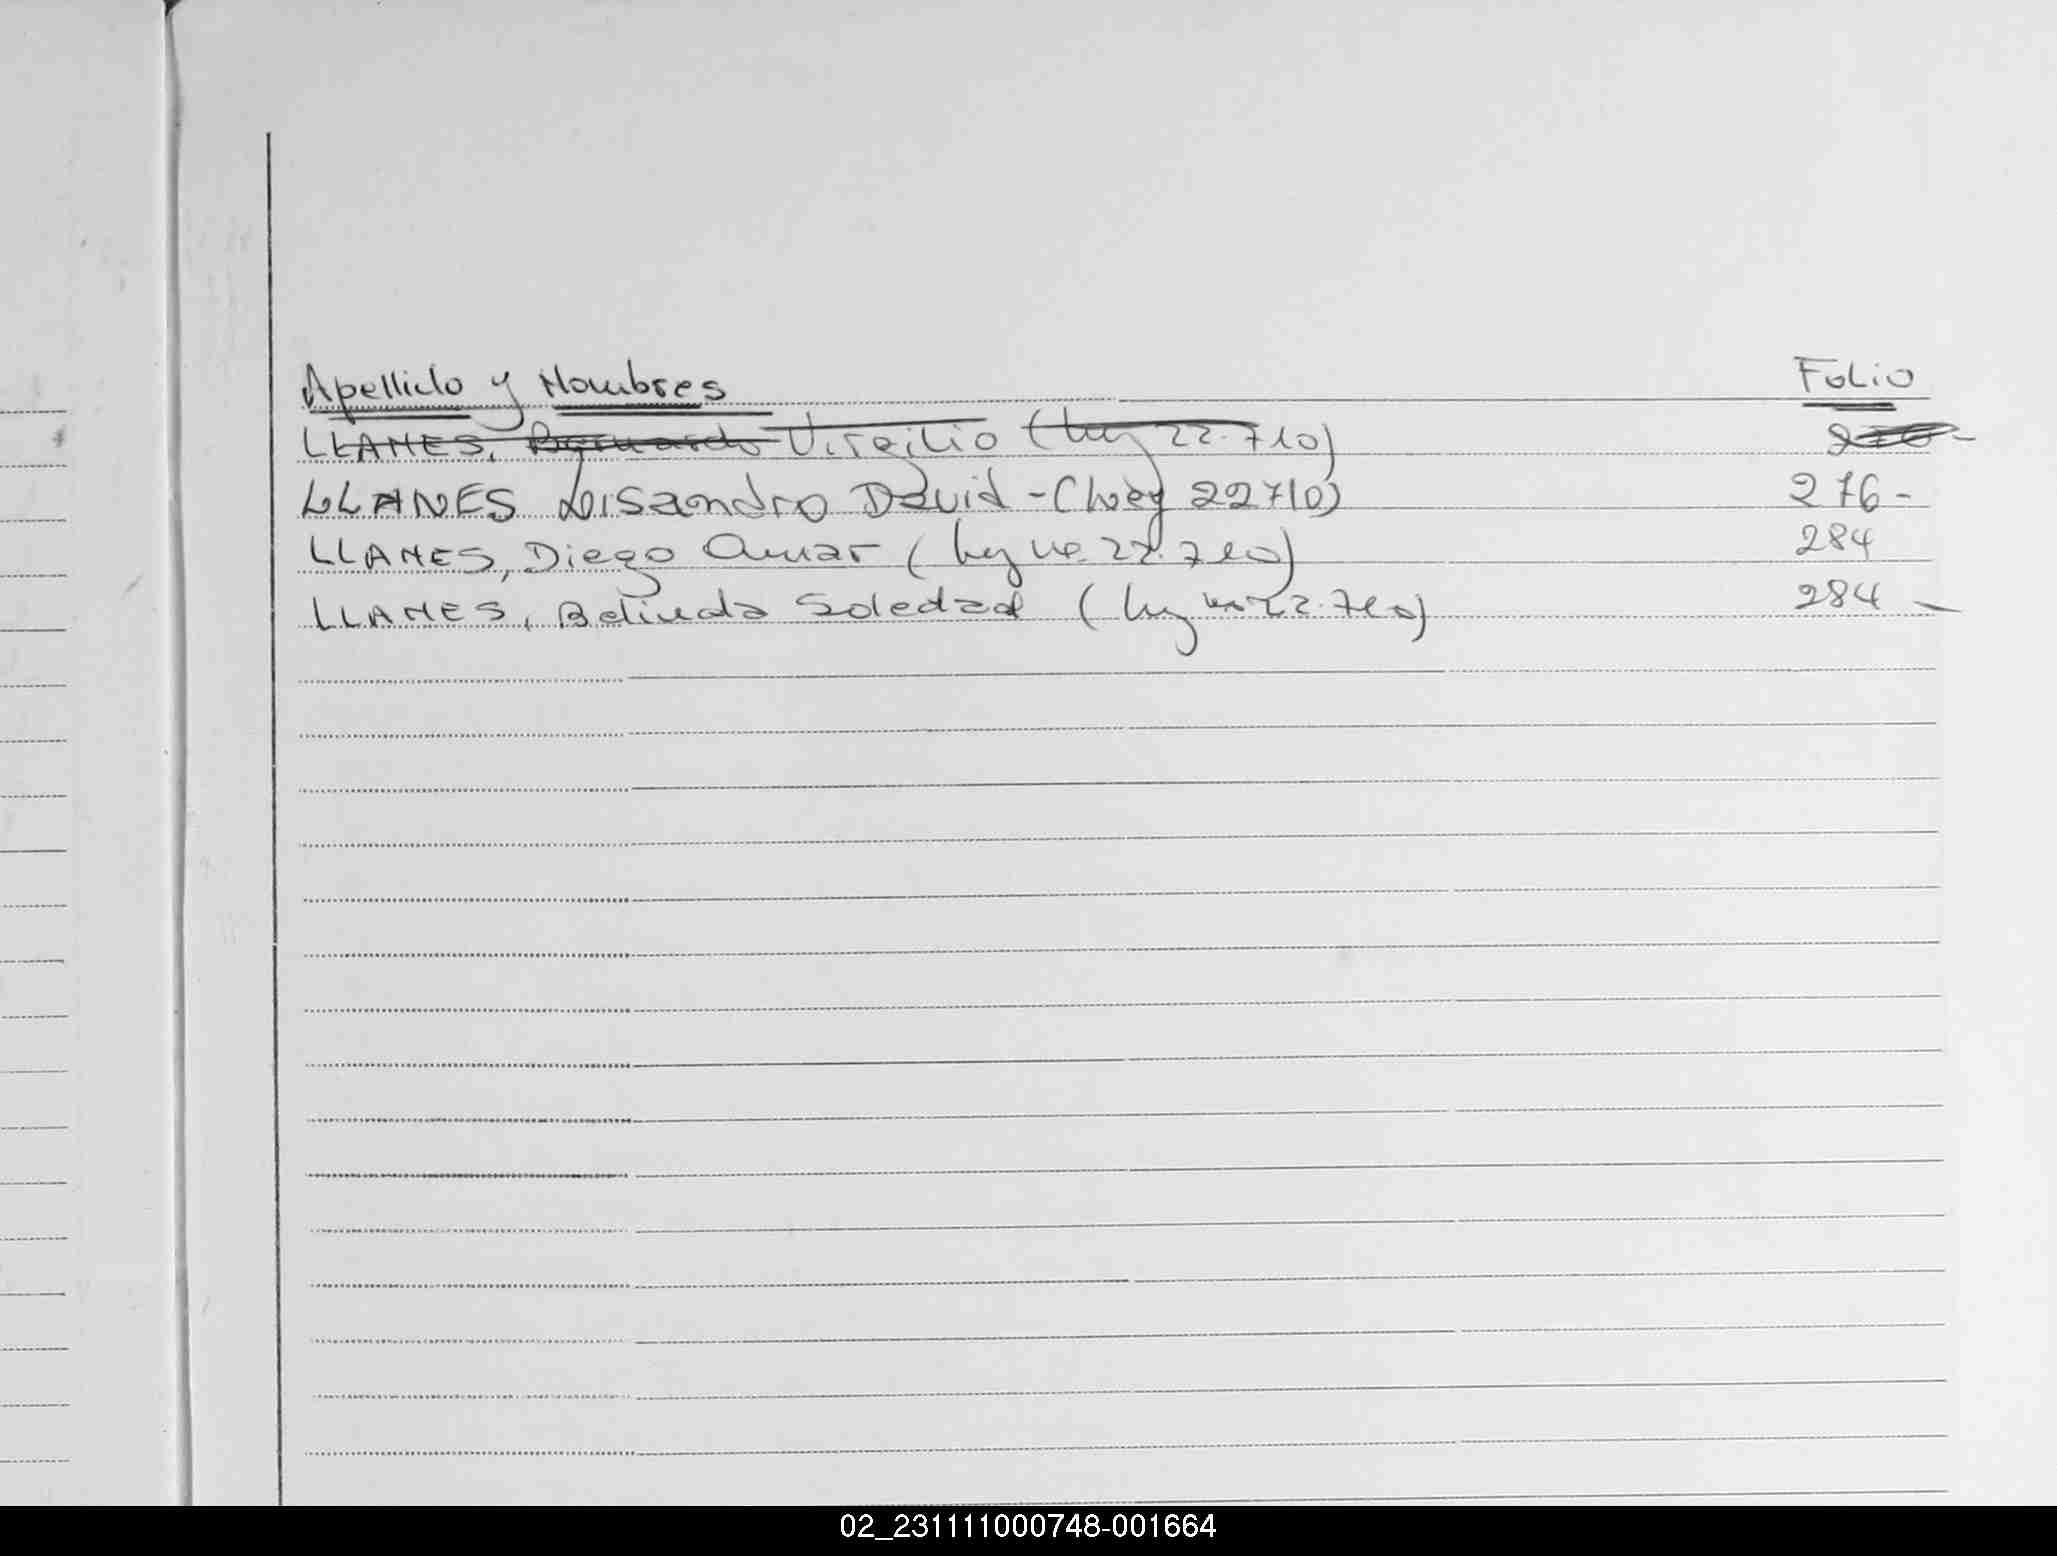 Apellido y Nombres Folio
LLANES, Bernardo Virgilio (ley 22.710) 276-
LLANES Lisandro David - (Ley 22710) 276-
LLANES, Diego Omar (ley nº 22.710) 284
LLANES, Belinda Soledad (ley nº 22.710) 284 -
02_231111000748-001664